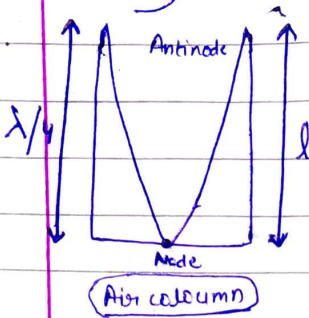 Antinode
λ/4
l
Node
Air coloumn